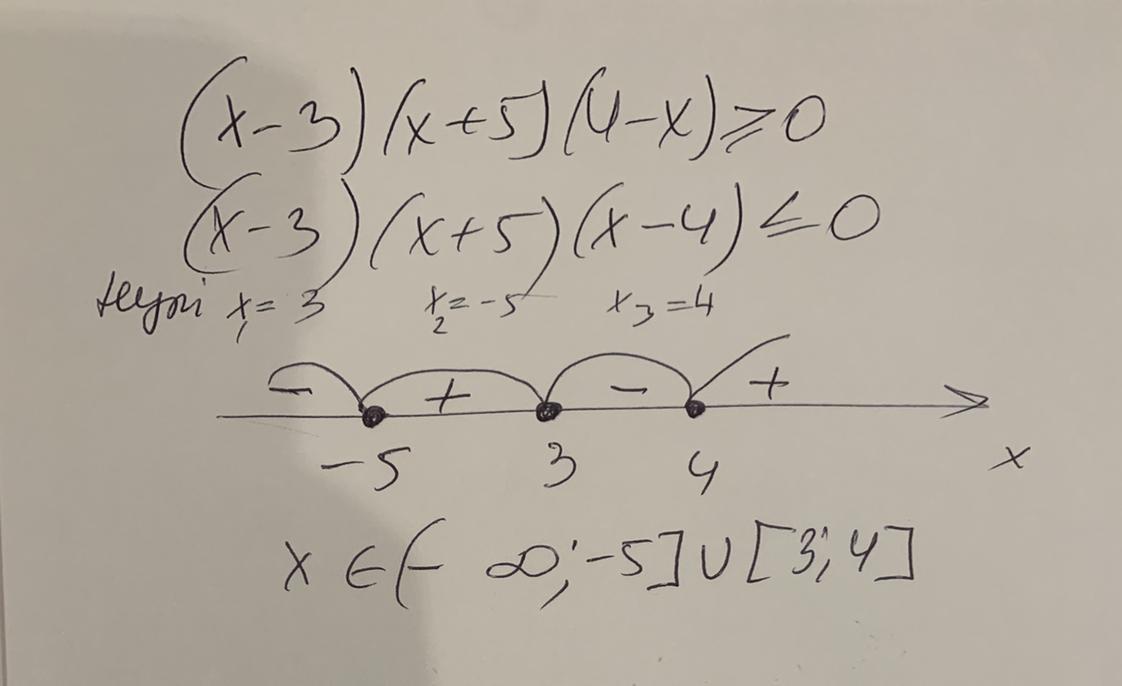 (x-3)(x+5)(4-x)≥0
(x-3)(x+5)(x-4)≤0
нулі x₁=3 x₂=-5 x₃=4
- + - +
-5 3 4 x
x∈(-∞;-5]∪[3;4]